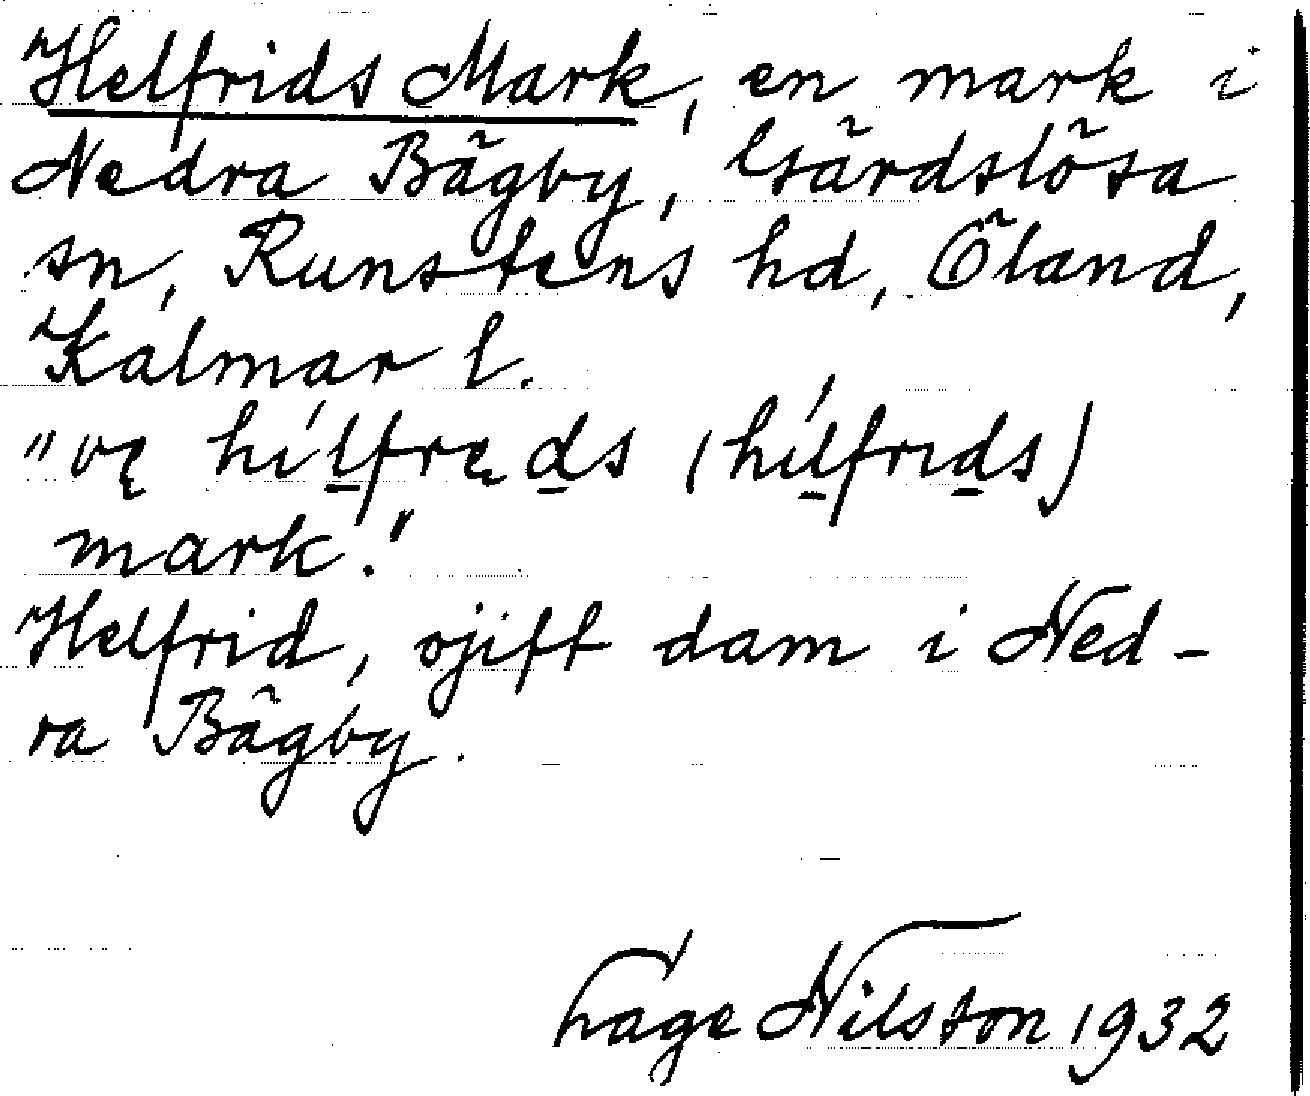 Helfrids Mark, en mark i
Nedra Bägby, Gärdslösa
sn, Runstens hd, Öland,
Kalmar l.
"vę hílfręds (hílfrıds)
mark."
Helfrid, ogift dam i Ned-
ra Bägby.
Tage Nilsson 1932